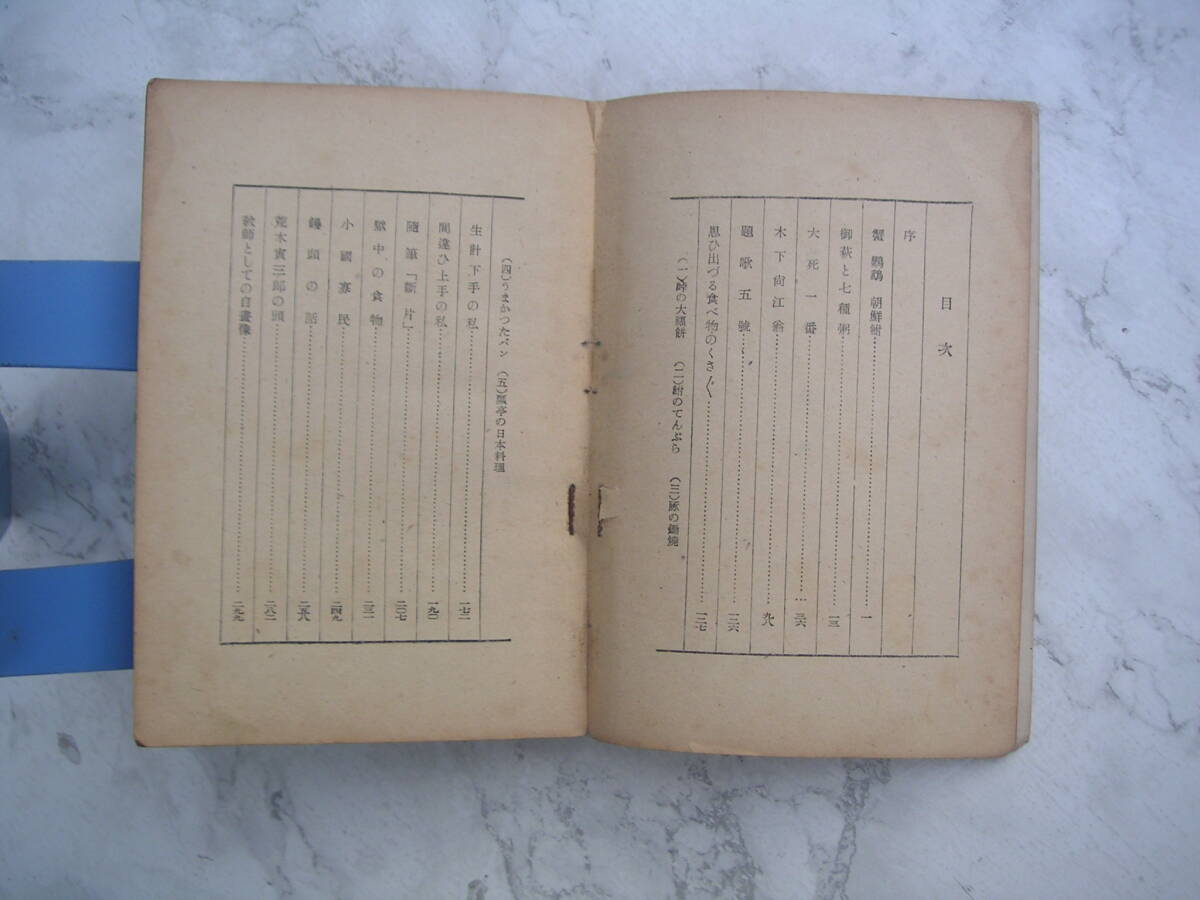 目次
序
蟹 鸚鵡 朝鮮鮒……一
御萩と七種粥……一三
大死一番……三六
木下尙江翁……九八
題歌五號……一二六
思ひ出づる食べ物のくさ〴〵……一三七
(一)峠の大福餅 (二)鮒のてんぷら (三)豚の鍋燒
(四)うまかつたパン (五)瓢亭の日本料理
生計下手の私……一七二
間違ひ上手の私……一九〇
隨筆「斷片」……二〇七
獄中の食物……二三一
小國寡民……二四九
饅頭の話……二五八
荒木寅三郎の頭……二八二
敎師としての自畫像……二九九